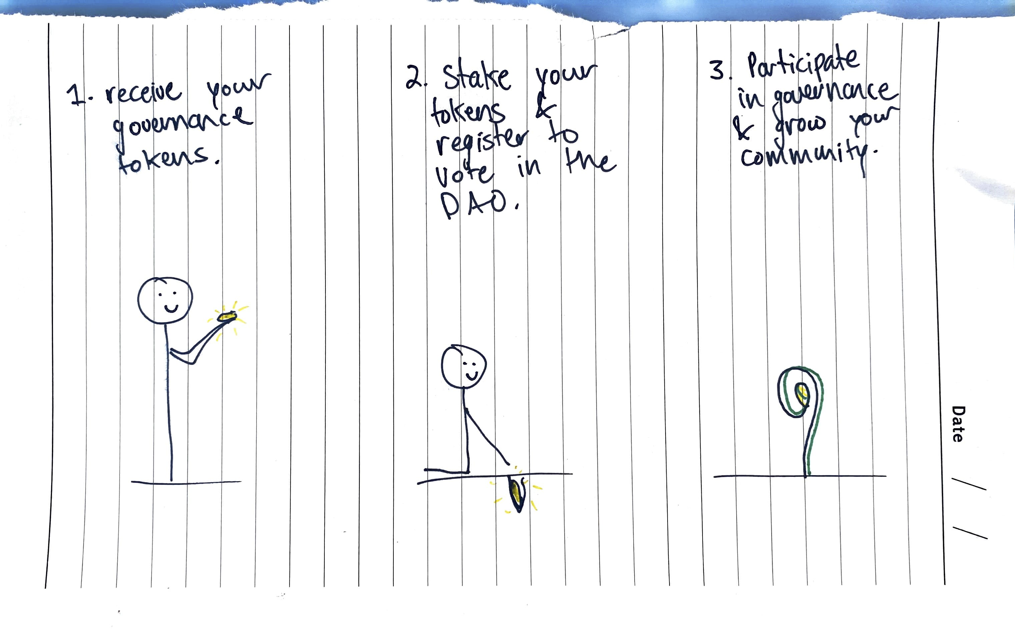 1. receive your
governance
tokens.
2. Stake your
tokens &
register to
vote in the
DAO.
3. Participate
in governance
& grow your
community.
Date